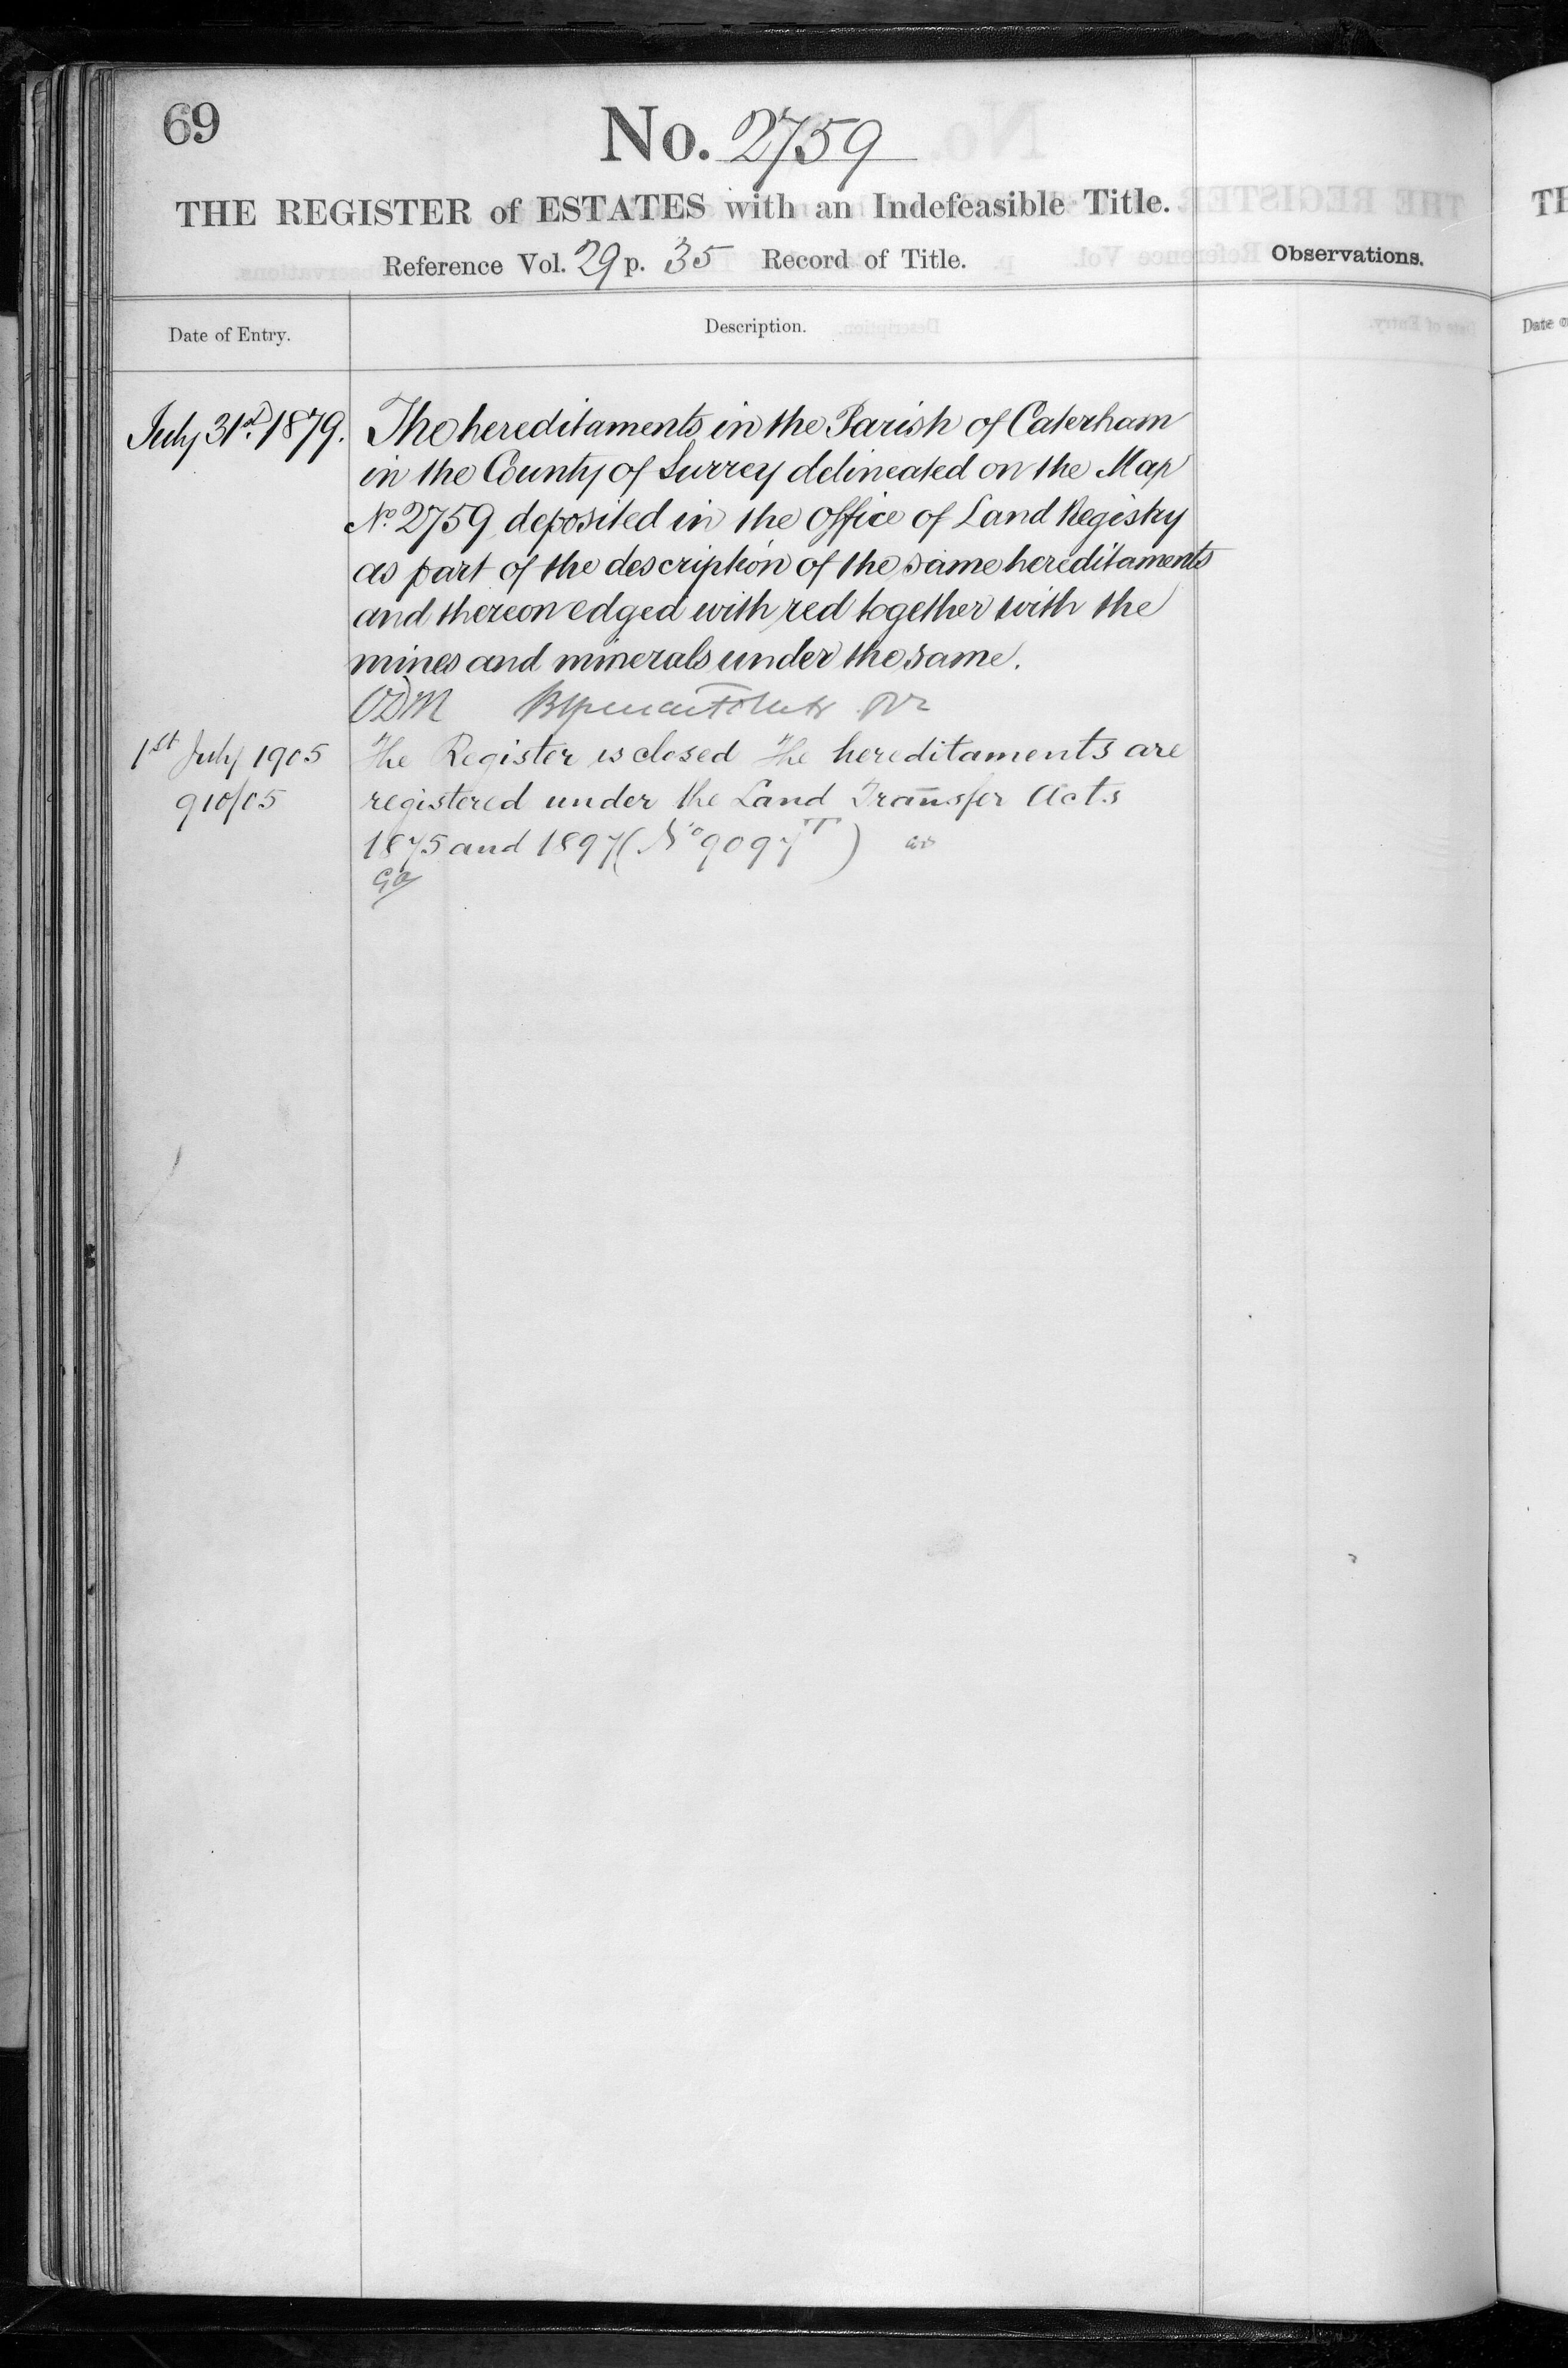 69
No. 2759
THE REGISTER of ESTATES with an Indefeasible Title.
Reference Vol. 29 p. 35 Record of Title.
Observations.
Date of Entry.
Description.
July 31st 1879.
The hereditaments in the Parish of Caterham
in the County of Surrey delineated on the Map
No. 2759 deposited in the Office of Land Registry
as part of the description of the same hereditaments
and thereon edged with red together with the
mines and minerals under the same.
ODM
1st July 1905
The Register is closed The hereditaments are
910/05
registered under the Land Transfer Acts
1875 and 1897 (No 9097T)